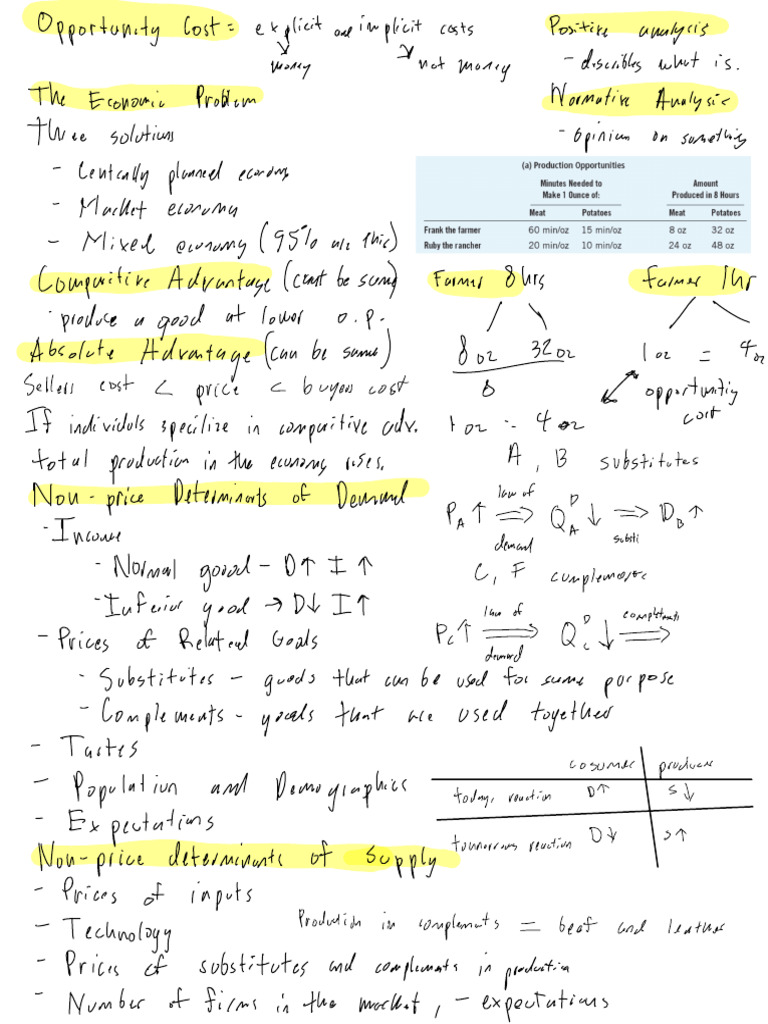 Opportunity Cost = explicit and implicit costs
money
not money
Positive analysis
- describes what is.
The Economic Problem
Normative Analysis
- opinion on something
Three solutions
- Centrally planned economy
- Market economy
- Mixed economy (95% are this)
(a) Production Opportunities
Minutes Needed to Make 1 Ounce of:
Amount Produced in 8 Hours
Meat Potatoes Meat Potatoes
Frank the farmer 60 min/oz 15 min/oz 8 oz 32 oz
Ruby the rancher 20 min/oz 10 min/oz 24 oz 48 oz
Comparitive Advantage (cant be same)
· produce a good at lower o.p.
Absolute Advantage (can be same)
Sellers cost < price < buyers cost
If individuls specilize in comparitive adv.
total production in the economy rises.
Farmer 8hrs
8 oz 32 oz
8
1 oz = 4 oz
Farmer 1hr
1 oz = 4 oz
opportunitiy
cost
Non-price Determinants of Demand
- Income
- Normal good - D↑ I ↑
- Inferior good → D↓ I↑
- Prices of Related Goals
- Substitutes - goods that can be used for same porpose
- Complements - goods that are used together
- Tastes
- Population and Demographics
- Expectations
A, B substitutes
P_A ↑ ⇒ Q^D_A ↓ ⇒ D_B ↑
law of
demand
substi
C, F complements
P_C ↑ ⇒ Q^D_C ↓ ⇒
law of
demand
complements
cosumer producer
today, reaction D↑ S↓
tommorrows reaction D↓ S↑
Non-price determinants of Supply
- Prices of inputs
- Technology
Production in complements = beaf and leather
- Prices of substitutes and complements in production
- Number of firms in the market, - expectations